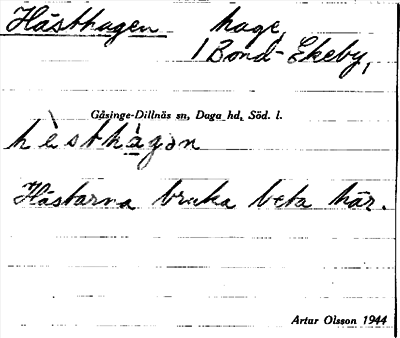 Hästhagen hage,
1 Bond-Ekeby,
Gåsinge-Dillnäs sn, Daga hd, Söd. l.
hèsthàgən
Hästarna bruka beta här.
Artur Olsson 1944